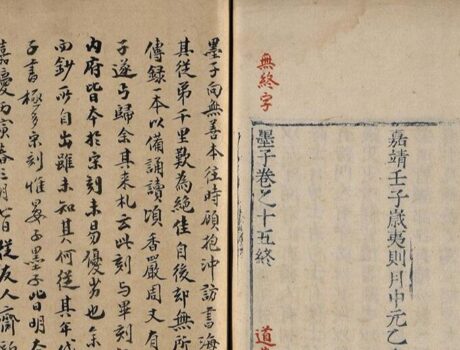 嘉靖壬子歲夷則月中元乙
無終字
墨子卷之十五終
道
墨子向無善本往時顧抱沖訪書海
其從弟千里歎為絕佳自後却無所
傳録一本以備誦讀頃香嚴周丈有
子遂丐歸余其来札云此刻与畢刻
内府皆本於宋刻未易優劣也余
而鈔所自出雖未知其何從其年代
子書極多宋刻惟晏子墨子皆明本
嘉慶丙寅春三月七日從友人齋